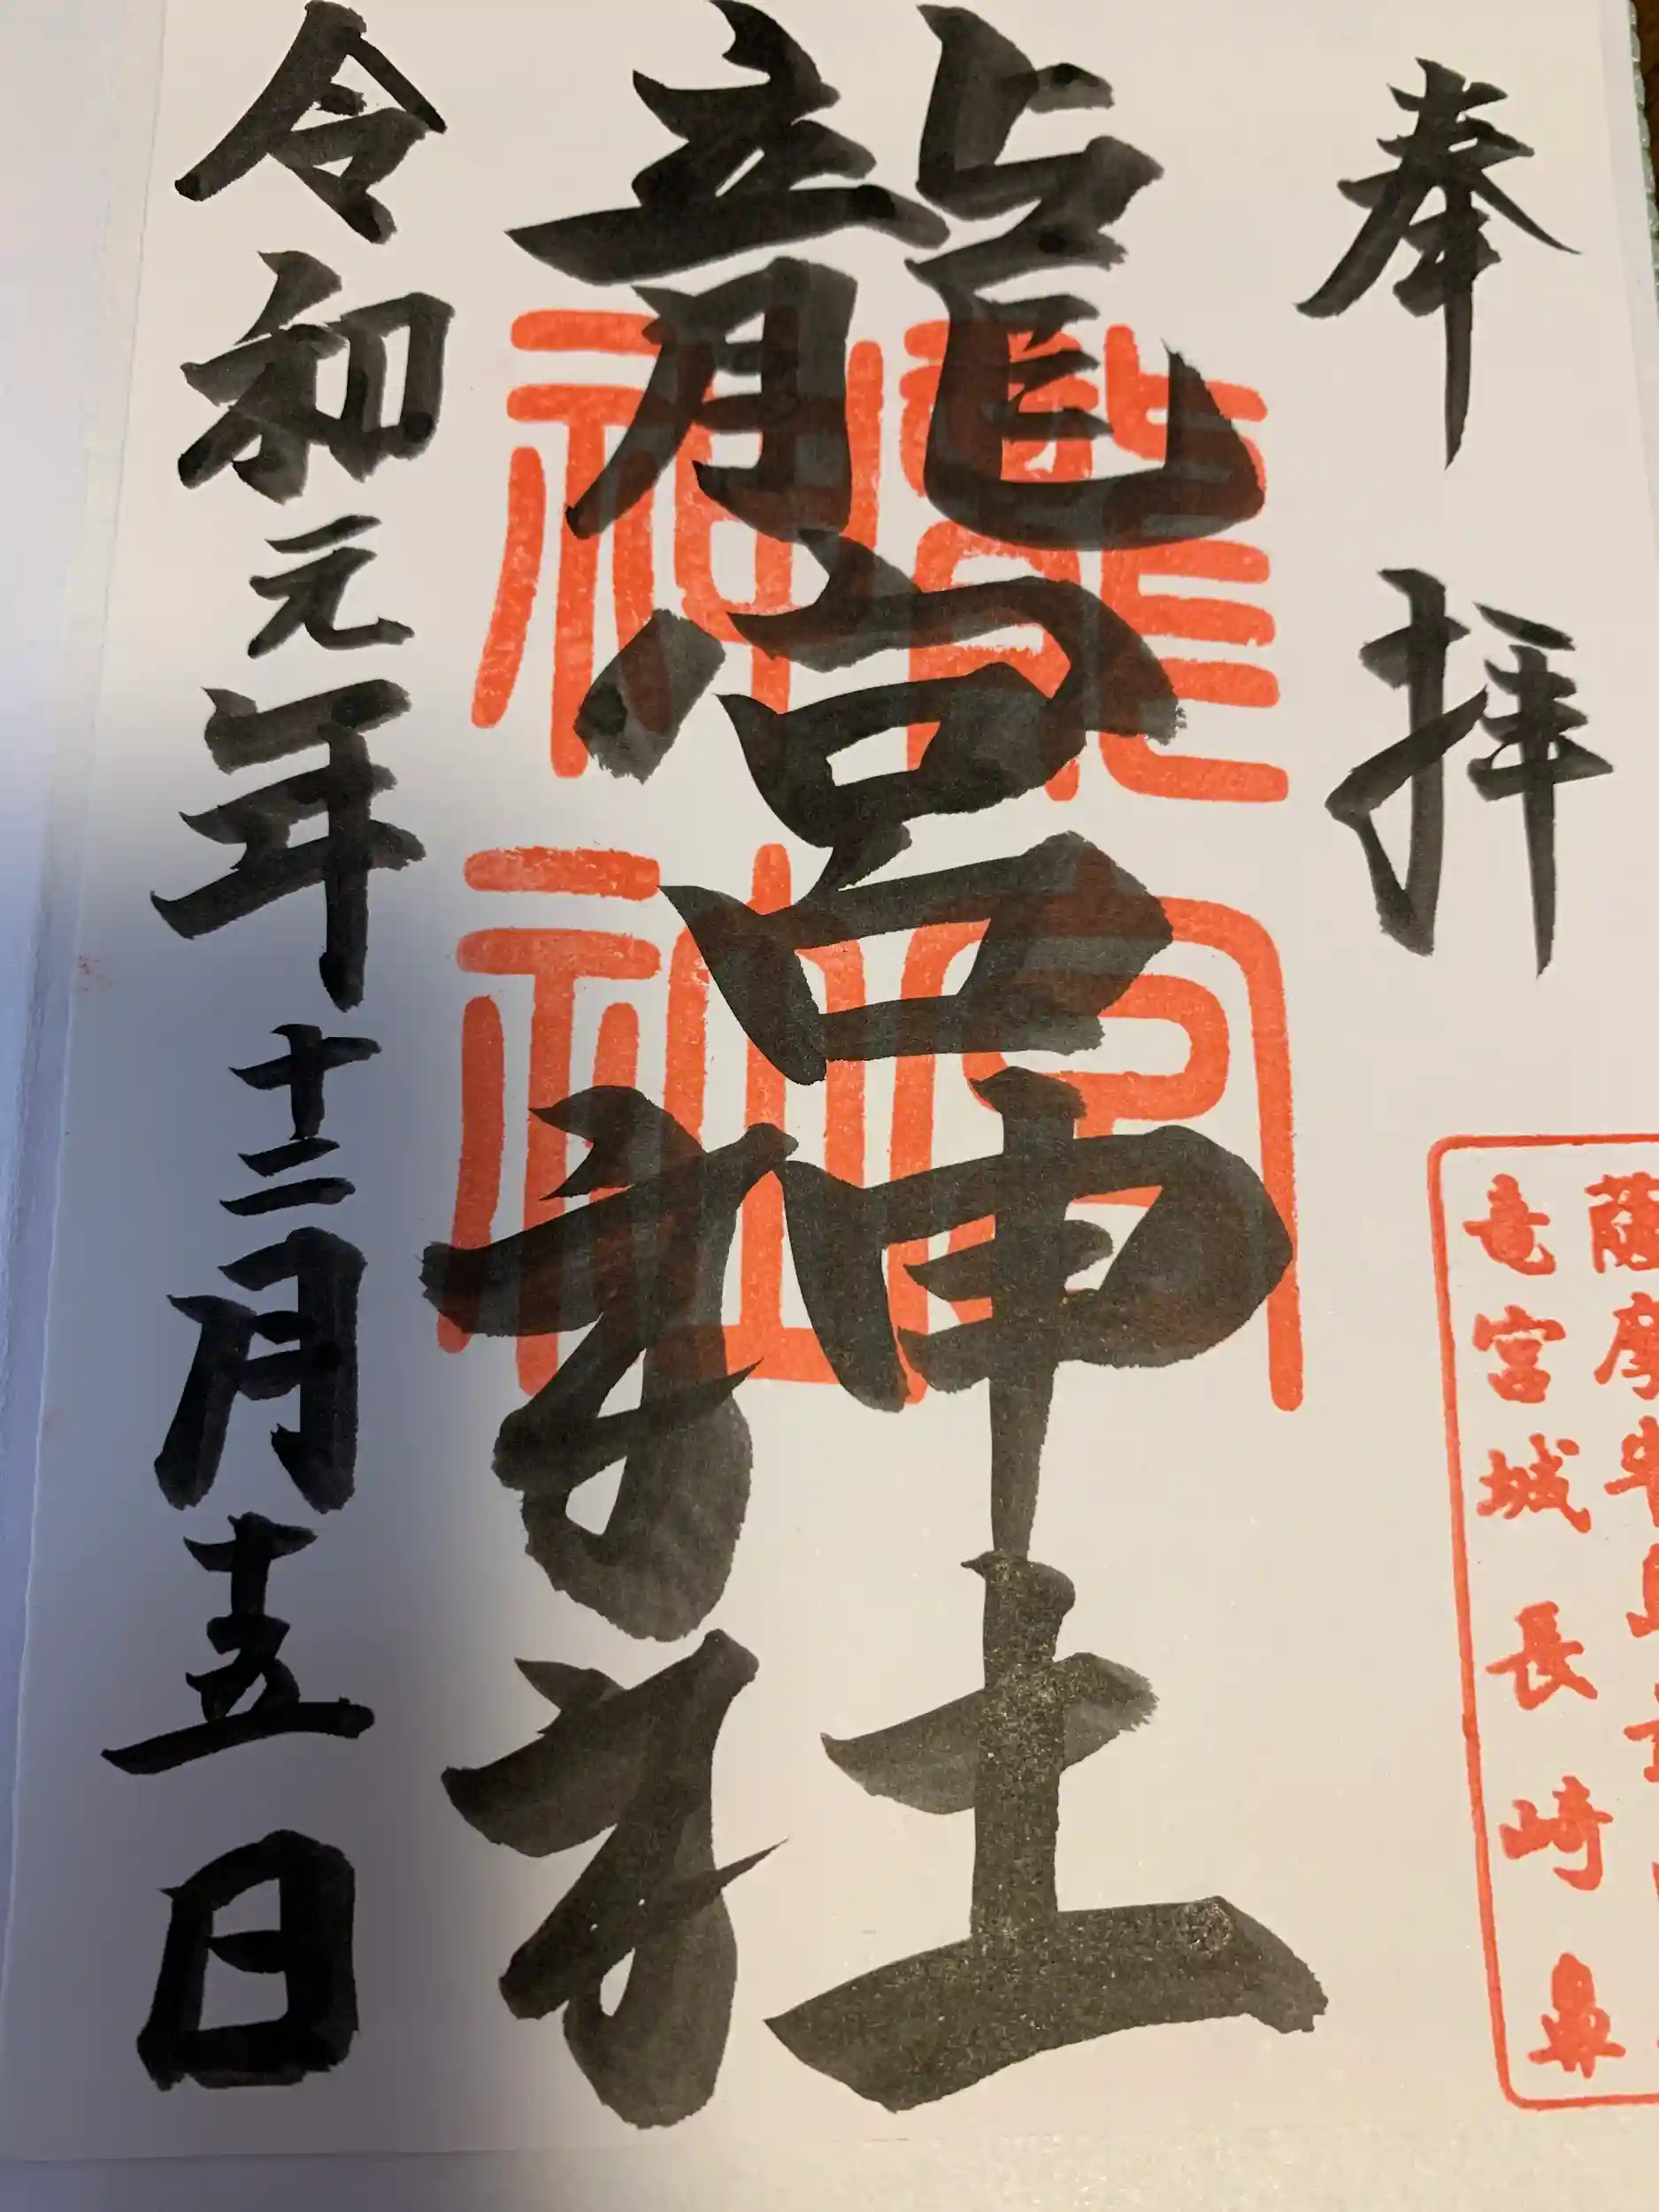 奉拝
薩摩半島
竜宮城長崎鼻
龍宮神社
龍宮
神社
令和元年十二月十五日